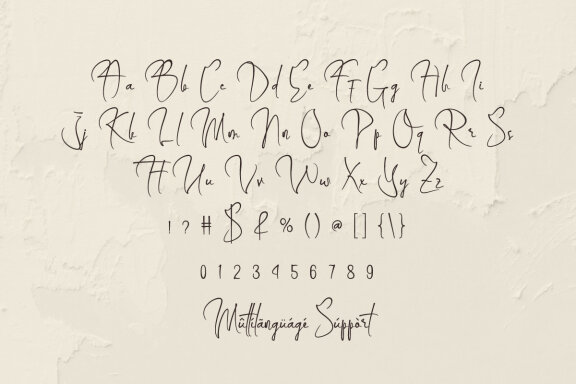 Aa Bb Cc Dd Ee Ff Gg Hh Ii
Jj Kk Ll Mm Nn Oo Pp Qq Rr Ss
Tt Uu Vv Ww Xx Yy Zz
! ? # $ & % () @ [] {\}
0 1 2 3 4 5 6 7 8 9
Mûltílãngüágé Súppòrt